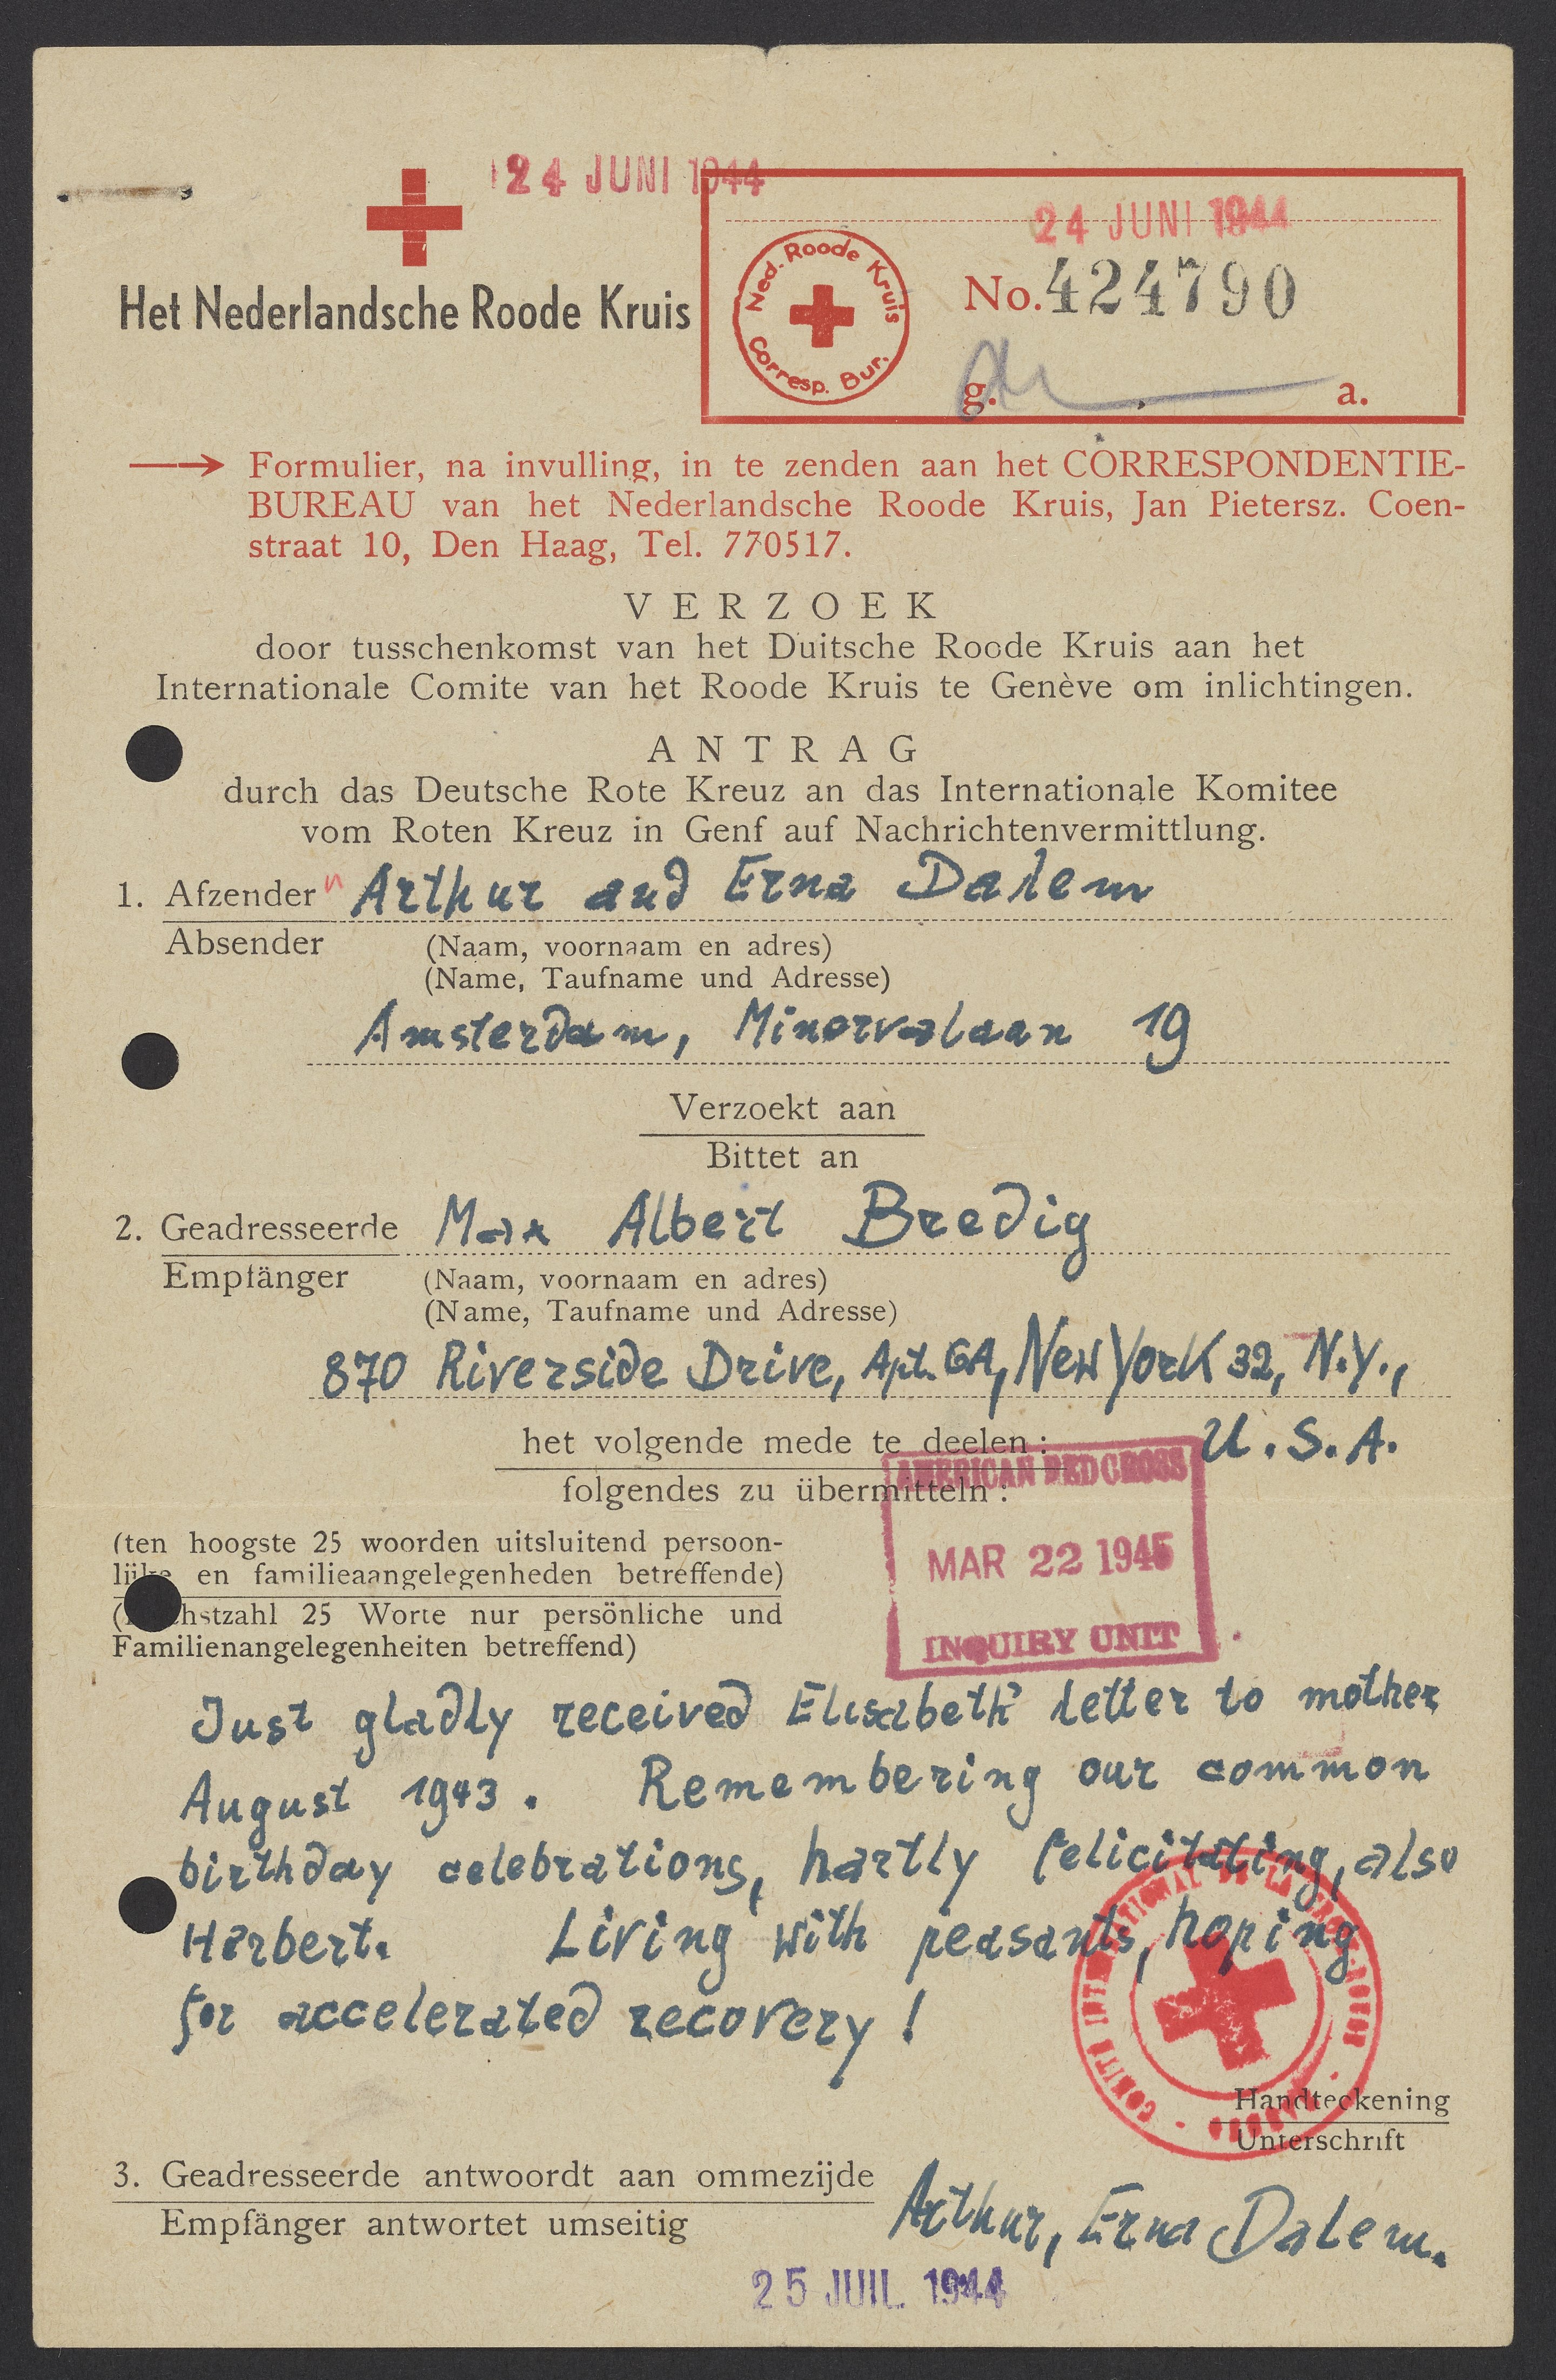 24 JUNI 1944
24 JUNI 1944
Het Nederlandsche Roode Kruis
Ned. Roode Kruis
Corresp. Bur.
No. 424790
g. a.
Formulier, na invulling, in te zenden aan het CORRESPONDENTIE-
BUREAU van het Nederlandsche Roode Kruis, Jan Pietersz. Coen-
straat 10, Den Haag, Tel. 770517.
VERZOEK
door tusschenkomst van het Duitsche Roode Kruis aan het
Internationale Comite van het Roode Kruis te Genève om inlichtingen.
ANTRAG
durch das Deutsche Rote Kreuz an das Internationale Komitee
vom Roten Kreuz in Genf auf Nachrichtenvermittlung.
1. Afzender Arthur and Erna Dalem
Absender (Naam, voornaam en adres)
(Name, Taufname und Adresse)
Amsterdam, Minervalaan 19
Verzoekt aan
Bittet an
2. Geadresseerde Max Albert Bredig
Empfänger (Naam, voornaam en adres)
(Name, Taufname und Adresse)
870 Riverside Drive, Apt. 6A, New York 32, N.Y.,
het volgende mede te deelen: U.S.A.
folgendes zu übermitteln:
AMERICAN RED CROSS
MAR 22 1945
INQUIRY UNIT
(ten hoogste 25 woorden uitsluitend persoon-
lijke en familieaangelegenheden betreffende)
hstzahl 25 Worte nur persönliche und
Familienangelegenheiten betreffend)
Just gladly received Elisabeth' letter to mother
August 1943. Remembering our common
birthday celebrations, hartly felicitating, also
Herbert. Living with peasants, hoping
for accelerated recovery!
COMITÉ INTERNATIONAL DE LA CROIX-ROUGE - GENÈVE -
Handteekening
Unterschrift
3. Geadresseerde antwoordt aan ommezijde
Empfänger antwortet umseitig
Arthur, Erna Dalem.
25 JUIL. 1944